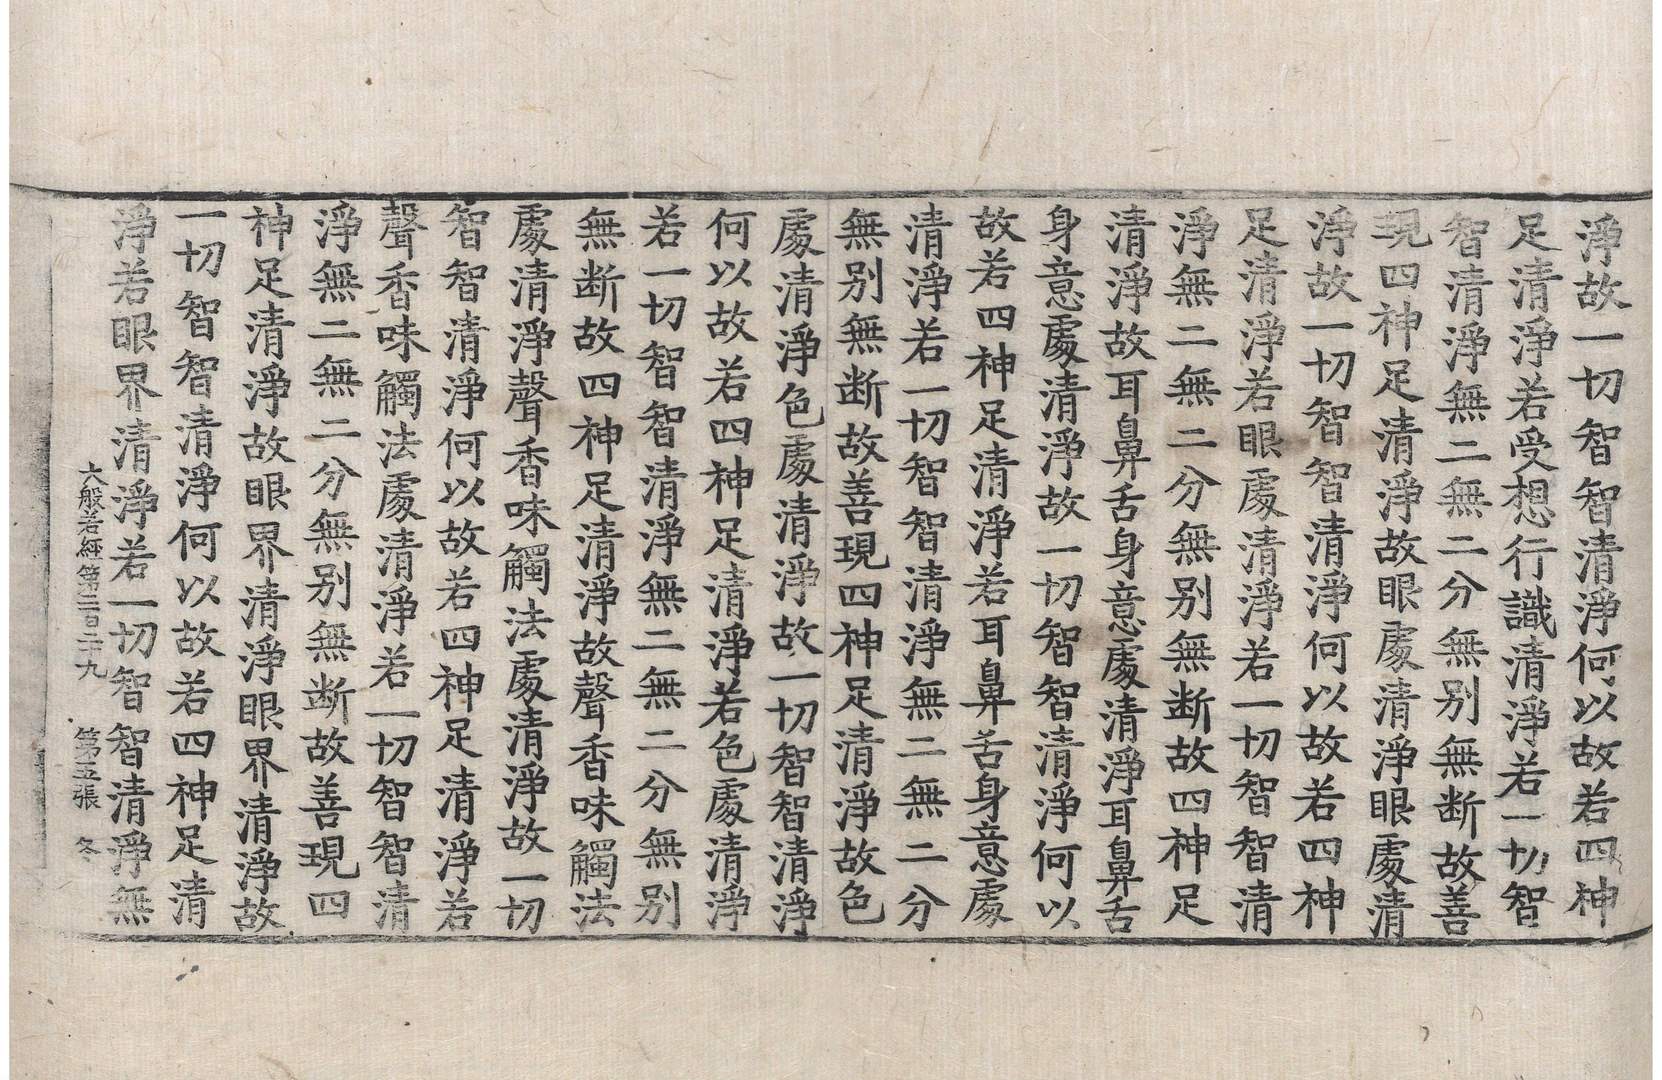 淨故一切智智清淨何以故若四神
足清淨若受想行識清淨若一切智
智清淨無二無二分無別無断故善
現四神足清淨故眼處清淨眼處清
淨故一切智智清淨何以故若四神
足清淨若眼處清淨若一切智智清
淨無二無二分無別無断故四神足
清淨故耳鼻舌身意處清淨耳鼻舌
身意處清淨故一切智智清淨何以
故若四神足清淨若耳鼻舌身意處
清淨若一切智智清淨無二無二分
無別無断故善現四神足清淨故色
處清淨色處清淨故一切智智清淨
何以故若四神足清淨若色處清淨
若一切智智清淨無二無二分無別
無断故四神足清淨故聲香味觸法
處清淨聲香味觸法處清淨故一切
智智清淨何以故若四神足清淨若
聲香味觸法處清淨若一切智智清
淨無二無二分無別無断故善現四
神足清淨故眼界清淨眼界清淨故
一切智智清淨何以故若四神足清
淨若眼界清淨若一切智智清淨無
大般若經第二百二十九 第五張 冬